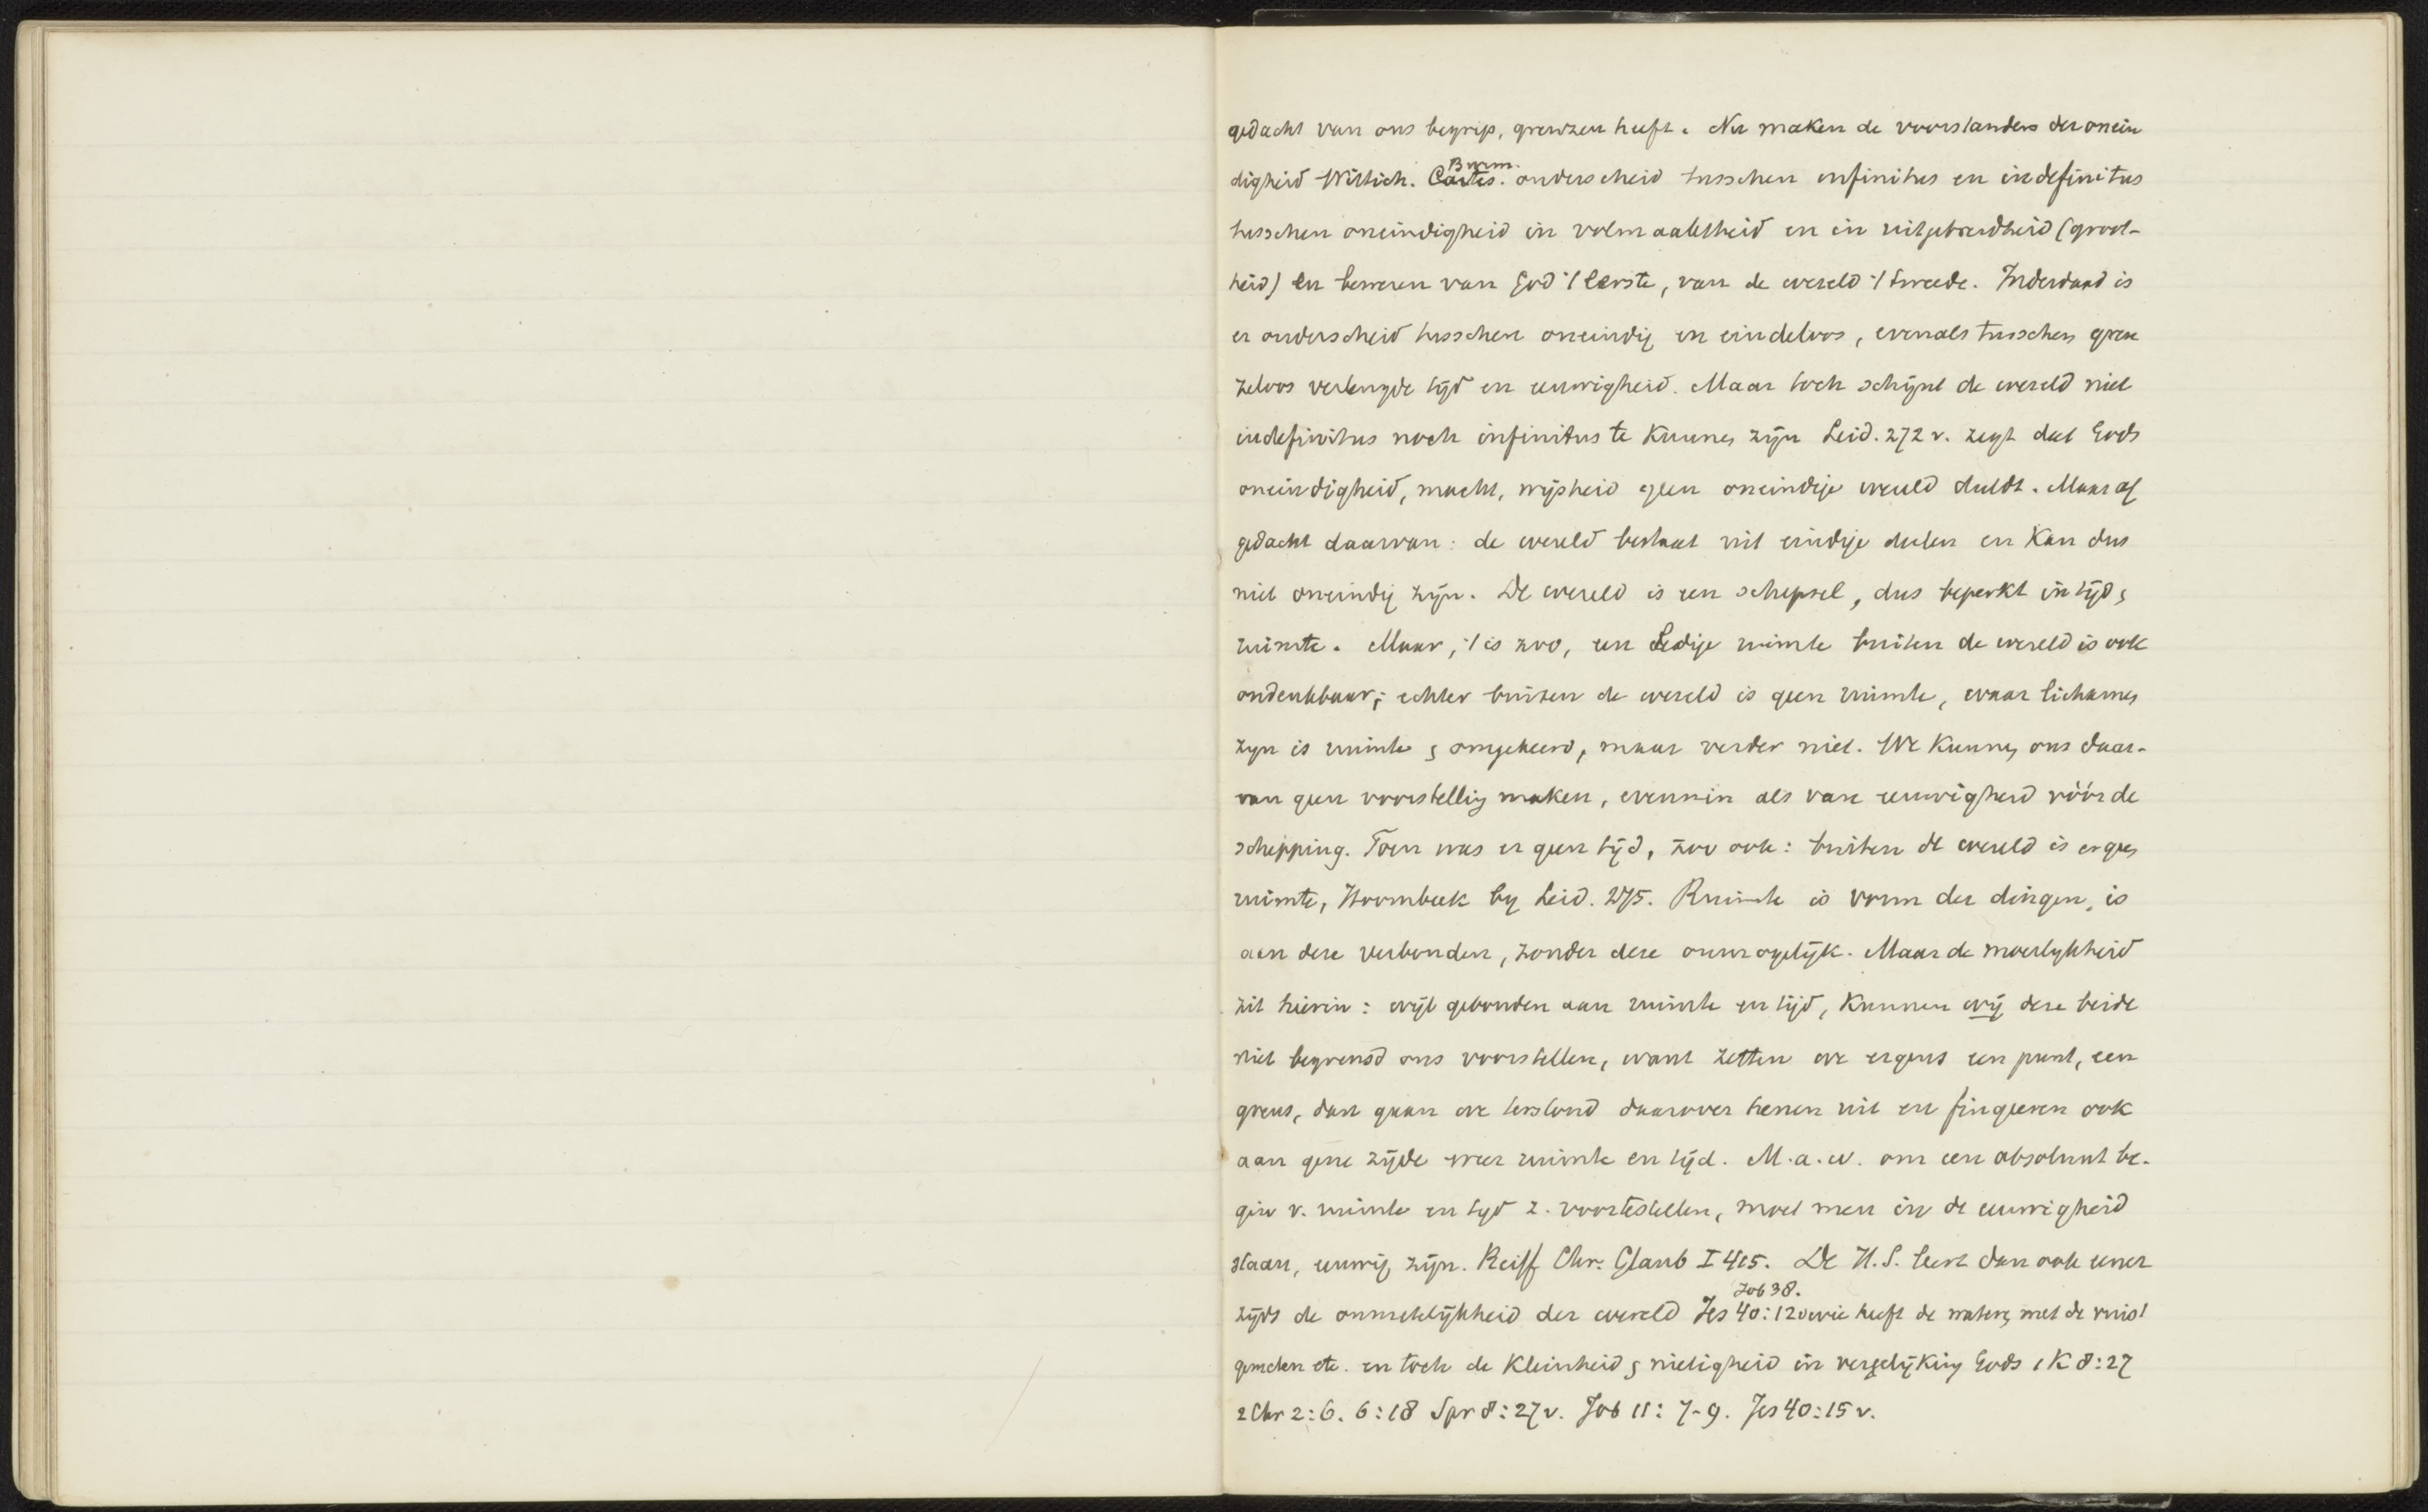 gedacht van ons begrip, grenzen heeft. Nu maken de voorstanders der onein
digheid Wittich. Burm. Cartes. onderscheid tusschen infinitus en indefinitus
tusschen oneindigheid in volmaaktheid en in uitgebreidheid (groot-
heid) en beweren van God 't eerste, van de wereld 't tweede. Inderdaad is
er onderscheid tusschen oneindig en eindeloos, evenals tusschen gren
zeloos verlengde tijd en eeuwigheid. Maar toch schijnt de wereld niet
indefinitus noch infinitus te kunnen zijn Leid. 272 v. zegt dat Gods
oneindigheid, macht, wijsheid geen oneindige wereld duldt. Maar af
gedacht daarvan: de wereld bestaat uit eindige deelen en kan dus
niet oneindig zijn. De wereld is een schepsel, dus beperkt in tijd en
ruimte. Maar, 't is zoo, een ledige ruimte buiten de wereld is ook
ondenkbaar; echter buiten de wereld is geen ruimte, waar lichamen
zyn is ruimte en omgekeerd, maar verder niet. We kunnen ons daar-
van geen voorstelling maken, evenmin als van eeuwigheid vóór de
schepping. Toen was er geen tijd, zoo ook: buiten de wereld is er geen
ruimte, Hoornbeek by Leid. 275. Ruimte is vorm der dingen, is
aan deze verbonden, zonder deze onmogelijk. Maar de moeilykheid
zit hierin: wijl gebonden aan ruimte en tijd, kunnen wij deze beide
niet begrensd ons voorstellen, want zetten we ergens een punt, een
grens, dan gaan we terstond daarover henen uit en fingeeren ook
aan gene zijde weer ruimte en tijd. M.a.w. om een absoluut be-
gin v. ruimte en tyd z. voortestellen, moet men in de eeuwigheid
staan, eeuwig zijn. Reiff Chr. Glaub I 415. De H.S. leert dan ook eener
zijds de onmetelijkheid der wereld Job 38. Jes 40:12 wie heeft de wateren met de vuist
gemeten etc. en toch de kleinheid en nietigheid in vergelijking Gods 1 K 8:27
2 Chr 2:6. 6:18 Spr 8:27v. Job 11: 7-9. Jes 40:15 v.